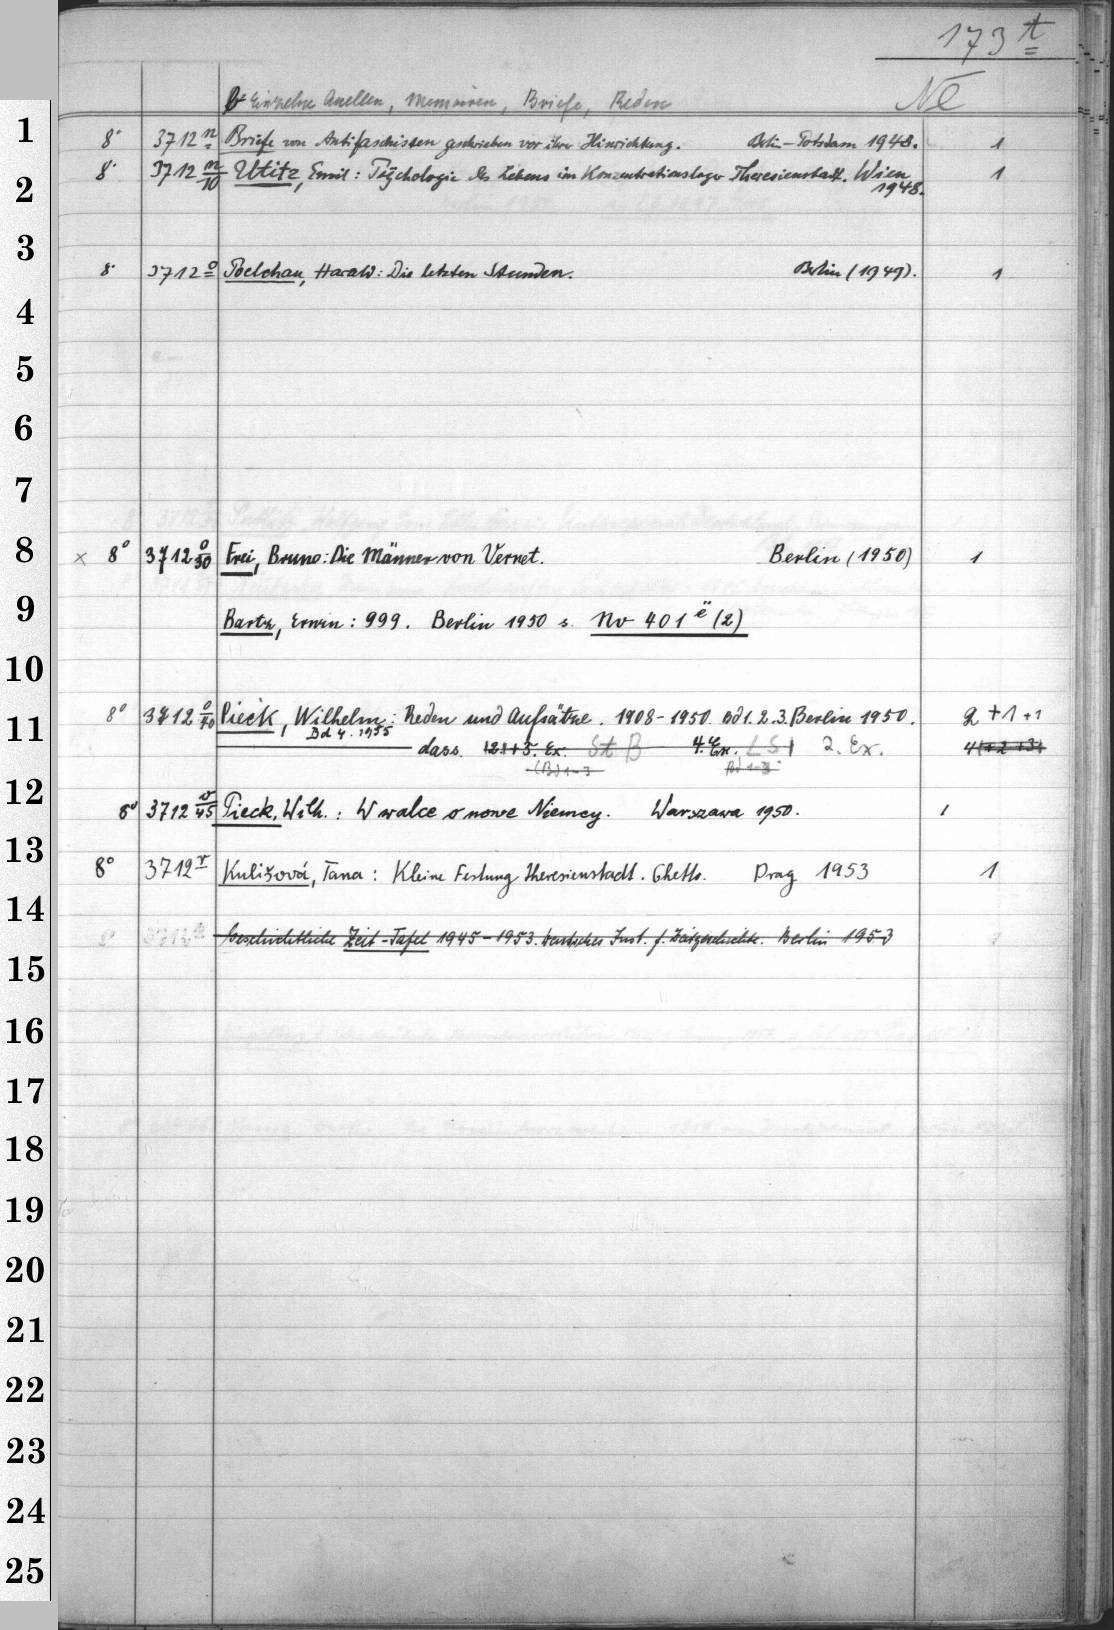 173 t
b Einzelne Quellen, Memoiren, Briefe, Reden
Ne
1 8° 3712 n Briefe von Antifaschisten geschrieben vor ihrer Hinrichtung. Berlin-Potsdam 1948. 1
2 8° 3712 n/10 Utitz, Emil: Psychologie des Lebens im Konzentrationslager Theresienstadt. Wien 1948. 1
3 8° 3712 o Poelchau, Harald: Die letzten Stunden. Berlin (1949). 1
4
5
6
7
8 × 8° 3712 o/30 Frei, Bruno: Die Männer von Vernet. Berlin (1950) 1
9 Bartz, Erwin: 999. Berlin 1950 s. Nv 401 ë (2)
10
11 8° 3712 o/40 Pieck, Wilhelm: Reden und Aufsätze. 1908-1950 Bd 1. 2. 3. Berlin 1950. 2 +1 +1
Bd 4. 1955
dass. 2.+3. Ex. St B 4. Ex. LS 1 2. Ex. 4(+2+3)
(Bd 1-3 Bd 1-3
12 8° 3712 o/45 Pieck, Wilh.: W walce o nowe Niemcy. Warszawa 1950. 1
13 8° 3712 r Kulišová, Tana: Kleine Festung Theresienstadt. Ghetto. Prag 1953 1
14 Geschichtliche Zeit-Tafel 1945-1953. Deutsches Inst. f. Zeitgeschichte. Berlin 1953
15
16
17
18
19
20
21
22
23
24
25